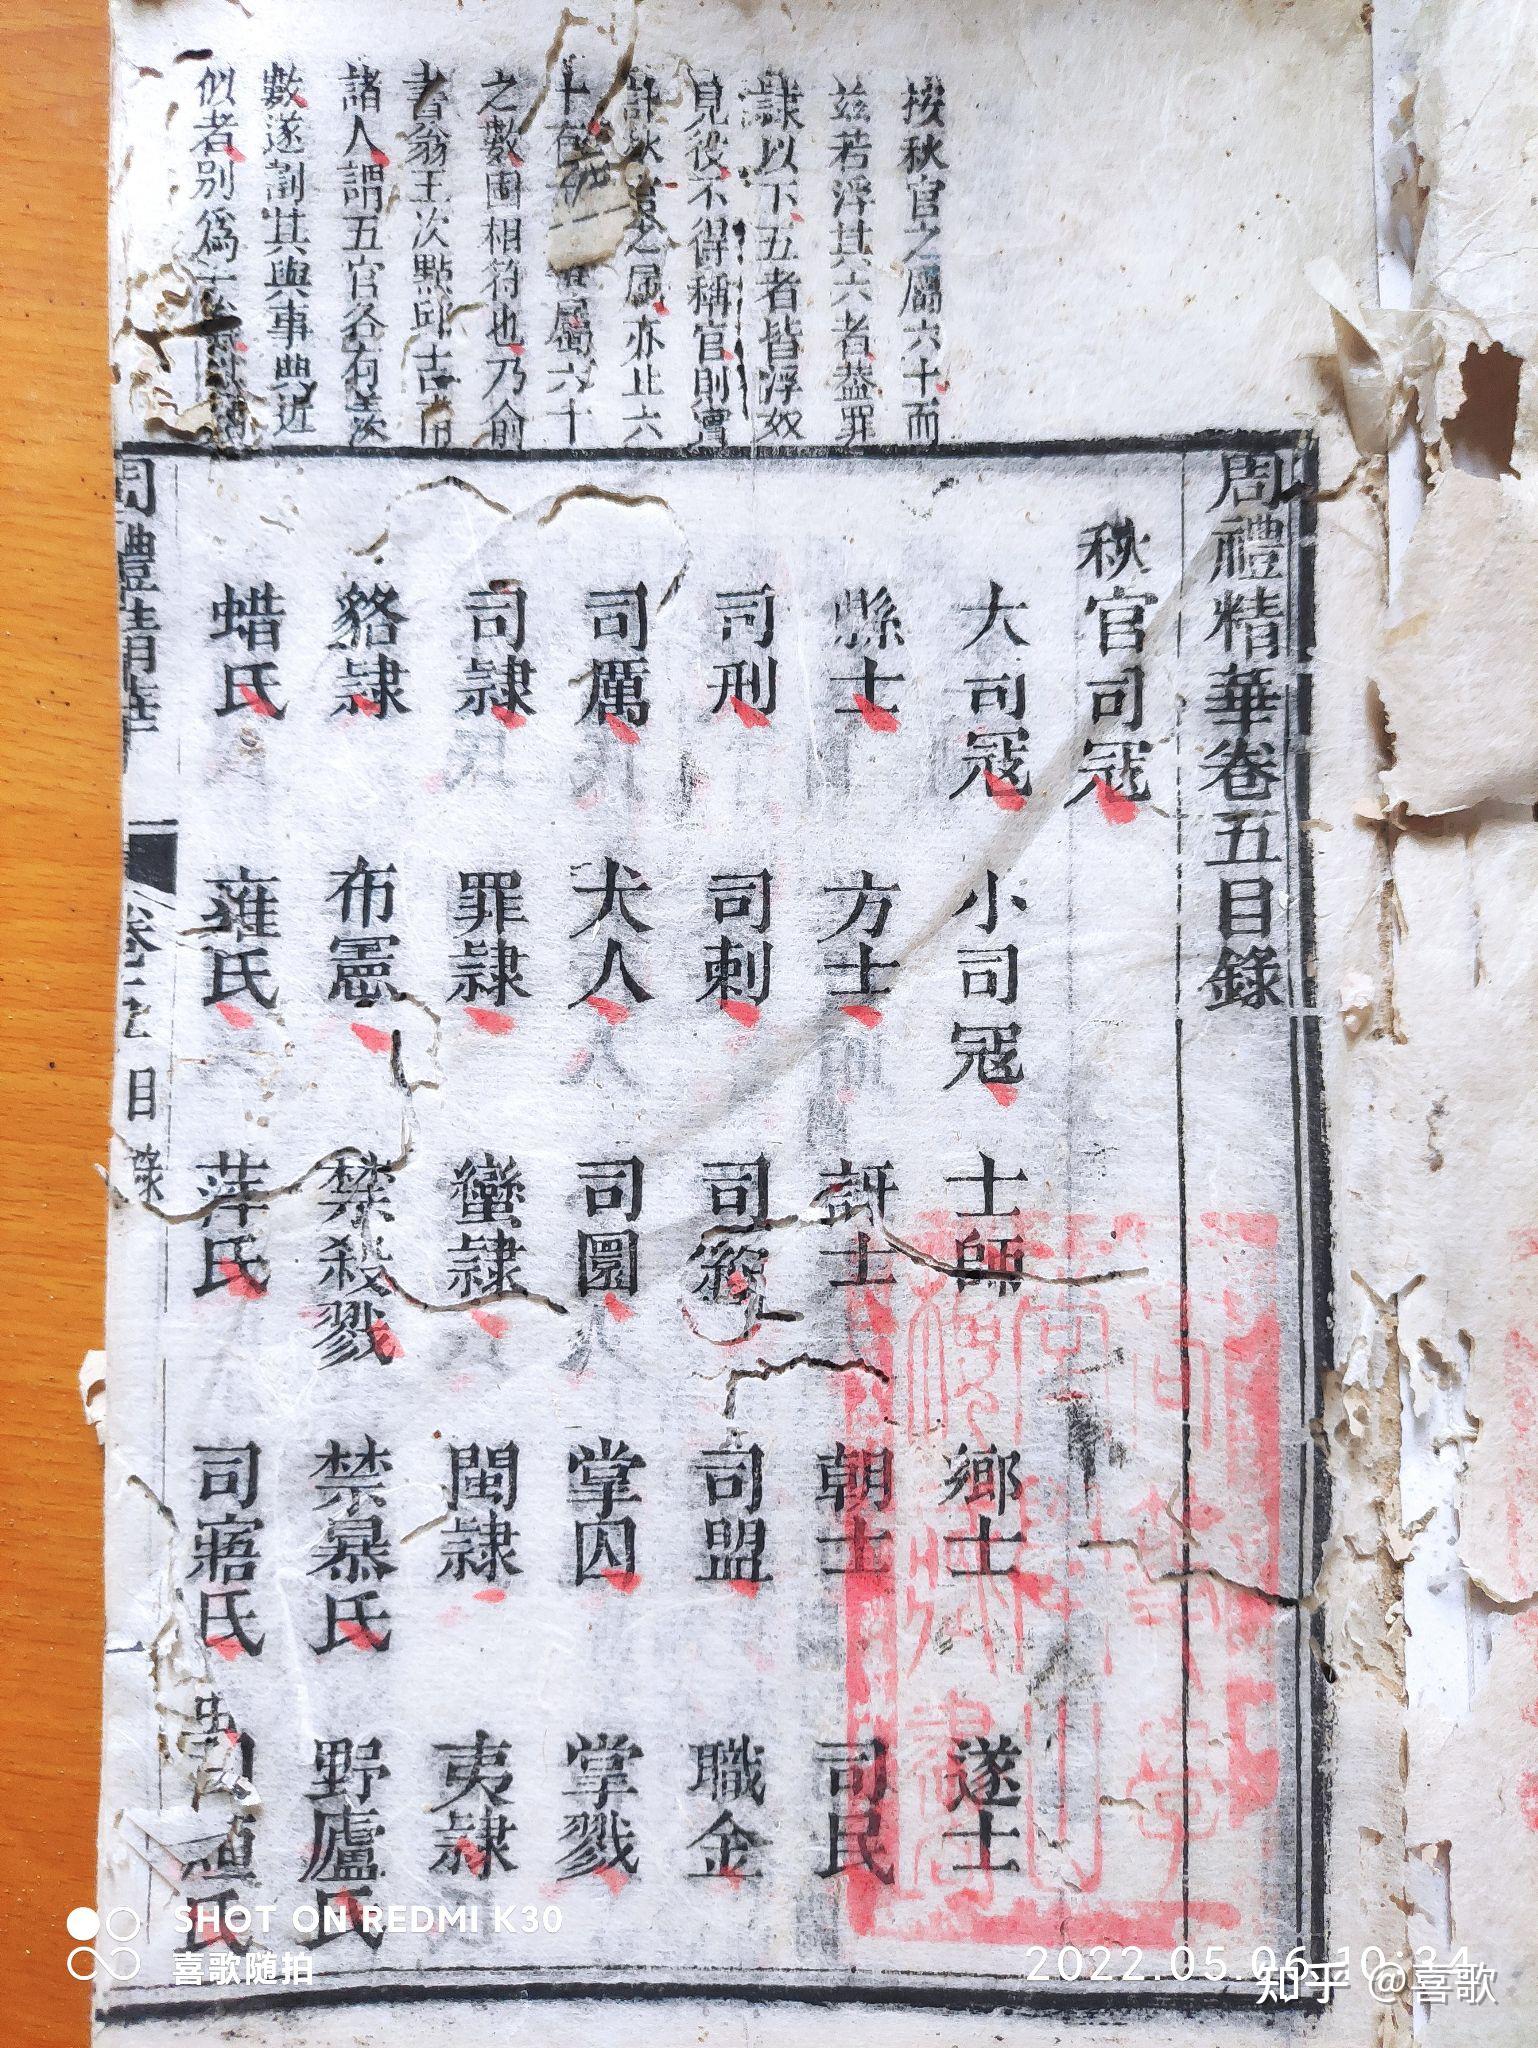 按秋官之屬六十而
茲若浮其六者蓋罪
隷以下五者皆浮奴
見役不得稱官則實
計秋官之属亦止六
十有
屬六十
之數固相符也乃俞
書翁王次點邱吉甫
諸人謂五官各有羡
數遂割其與事典近
似者別爲
周禮精華卷五目錄
秋官司寇
大司寇 小司寇 士師 鄉士 遂士
縣士 方士 訝士 朝士 司民
司刑 司刺 司約 司盟 職金
司厲 犬人 司圜 掌囚 掌戮
司隷 罪隷 蠻隷 閩隷 夷隷
貉隷 布憲 禁殺戮 禁暴氏 野廬氏
蜡氏 雍氏 萍氏 司寤氏 司烜氏
周禮精華 卷之五 目錄
SHOT ON REDMI K30
喜歌随拍
2022.05.06 10:34
知乎 @喜歌